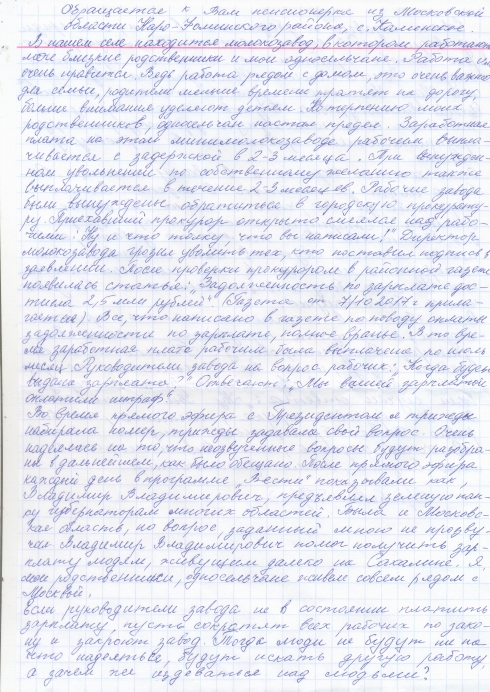 Обращается к Вам пенсионерка из Московской
области Наро-Фоминского района, с. Каменское.
В нашем селе находится молокозавод, в котором работают
мои близкие родственники и мои односельчане. Работа им
очень нравится. Ведь работа рядом с домом, это очень важно
для семьи, родители меньше времени тратят на дорогу,
больше внимания уделяют детям. Но терпению моих
родственников, односельчан настал предел. Заработная
плата на этом минимолокозаводе рабочим выпла-
чивается с задержкой в 2-3 месяца. При вынужден-
ном увольнении по собственному желанию также
выплачивается в течение 2-3 месяцев. Рабочие завода
были вынуждены обратиться в городскую прокурату-
ру. Приехавший прокурор открыто смеялся над рабо-
чими: "Ну и что толку, что вы написали!" Директор
молокозавода грозил уволить тех, кто поставил подпись в
заявлении. После проверки прокурором в районной газете
появилась статья: "Задолженность по зарплате дос-
тигла 2,5 млн рублей" (Газета от 7/10 2017 г прила-
гается). Все, что написано в газете по поводу оплаты
задолженности по зарплате, полное вранье. В то вре-
мя заработная плата рабочим была выплачена по июль
месяц. Руководители завода на вопрос рабочих: "Когда будет
выдана зарплата?" Отвечают: "Мы вашей зарплатой
оплатили штраф."
Во время прямого эфира с Президентом я трижды
набирала номер, трижды задавала свой вопрос. Очень
надеялась на то, что неозвученные вопросы будут разобра-
ны в дальнейшем, как было обещано. После прямого эфира
каждый день в программе "Вести" показывали как,
Владимир Владимирович, предъявлял зеленую пап-
ку губернаторам многих областей. Была и Московс-
кая область, но вопрос, заданный мною не прозву-
чал. Владимир Владимирович помог получить зар-
плату людям, живущим далеко на Сахалине. Я,
мои родственники, односельчане живем совсем рядом с
Москвой.
Если руководители завода не в состоянии платить
зарплату, пусть сократят всех рабочих по зако-
ну и закроют завод. Тогда люди не будут ни на
что надеяться, будут искать другую работу
а зачем же издеваться над людьми?